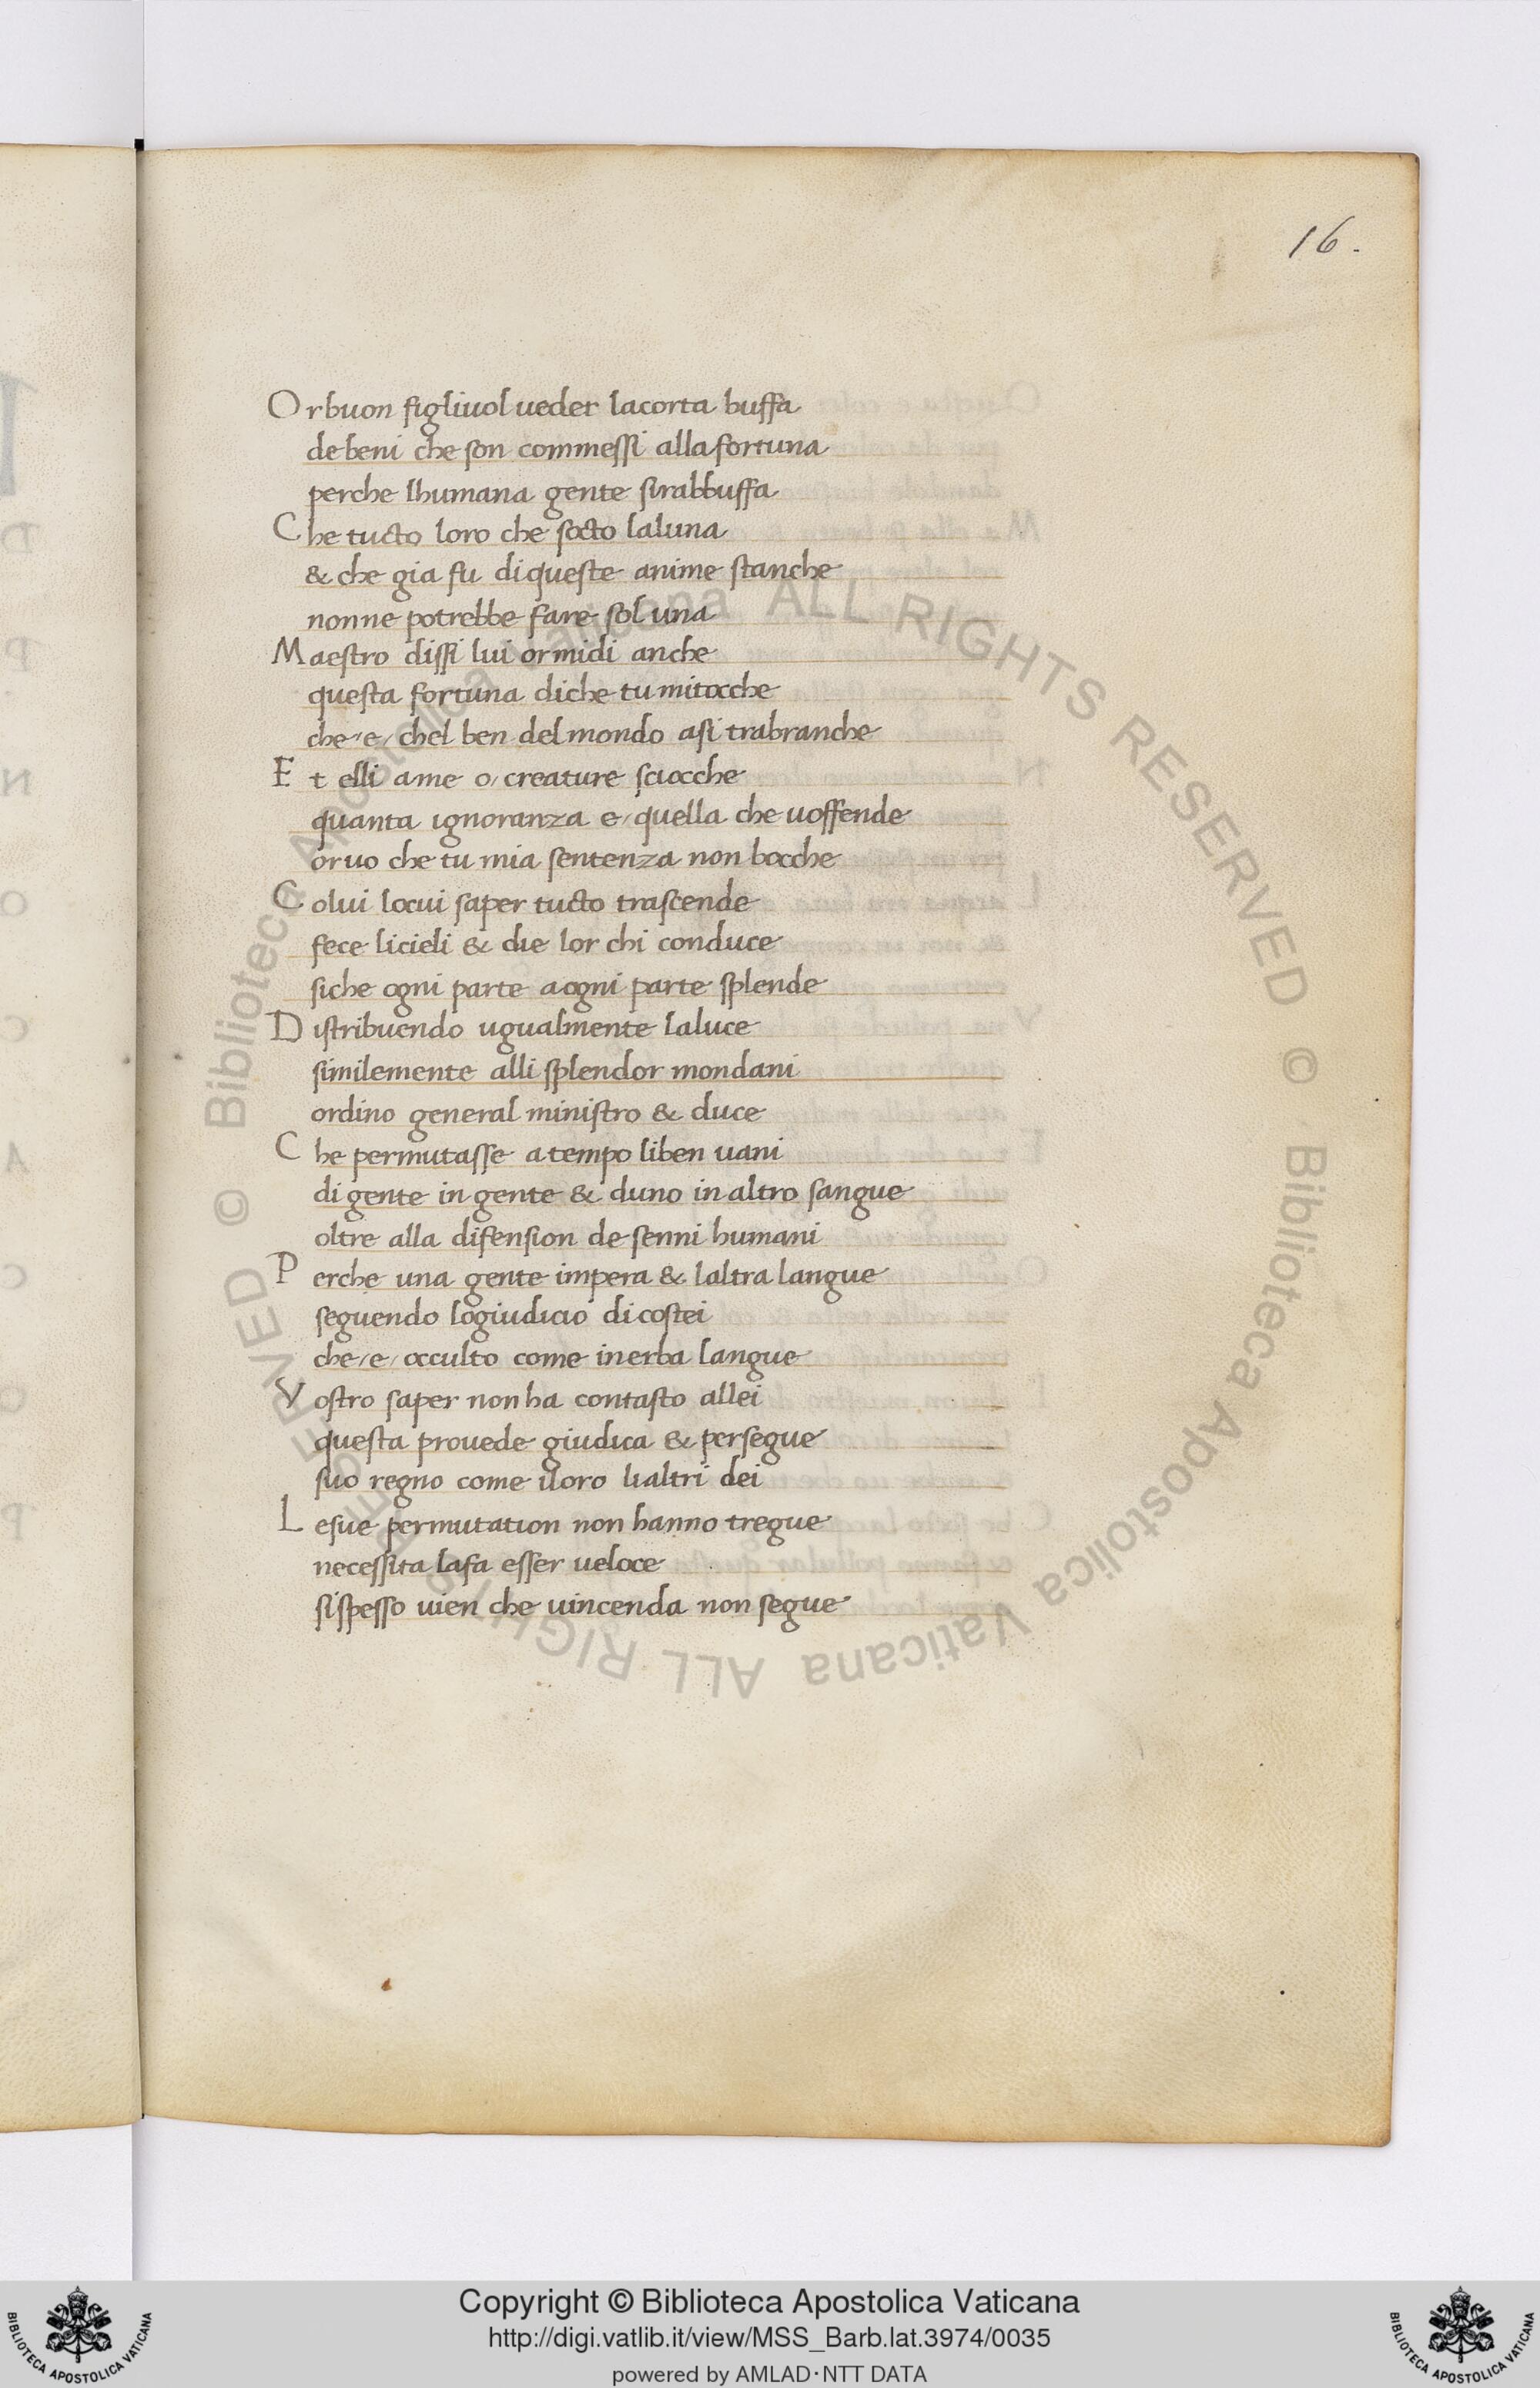 16.
Or buon figliuol ueder lacorta buffa
debeni che son commessi allafortuna
perche lhumana gente sirabbuffa
Che tucto loro che socto laluna
& che gia fu diqueste anime stanche
nonne potrebbe fare sol una
Maestro dissi lui ormidi anche
questa fortuna diche tu mitocche
che/e/ chel ben delmondo asi trabranche
Et elli ame o/ creature sciocche
quanta ignoranza e/ quella che uoffende
oruo che tu mia sentenza non bocche
Colui locui saper tucto trascende
fece licieli & die lor chi conduce
siche ogni parte aogni parte splende
Distribuendo ugualmente laluce
similemente alli splendor mondani
ordino general ministro & duce
Che permutasse atempo liben uani
digente in gente & duno in altro sangue
oltre alla difension de senni humani
Perche una gente impera & laltra langue
seguendo logiudicio dicostei
che/e/ occulto come inerba langue
Vostro saper non ha contasto allei
questa prouede giudica & persegue
suo regno come iloro lialtri dei
Lesue permutation non hanno tregue
necessita lafa esser ueloce
sispesso uien che uincenda non segue
© Biblioteca Apostolica Vaticana ALL RIGHTS RESERVED © Biblioteca Apostolica Vaticana ALL RIGHTS RESERVED
Copyright © Biblioteca Apostolica Vaticana
http://digi.vatlib.it/view/MSS_Barb.lat.3974/0035
powered by AMLAD·NTT DATA
BIBLIOTECA APOSTOLICA VATICANA
BIBLIOTECA APOSTOLICA VATICANA